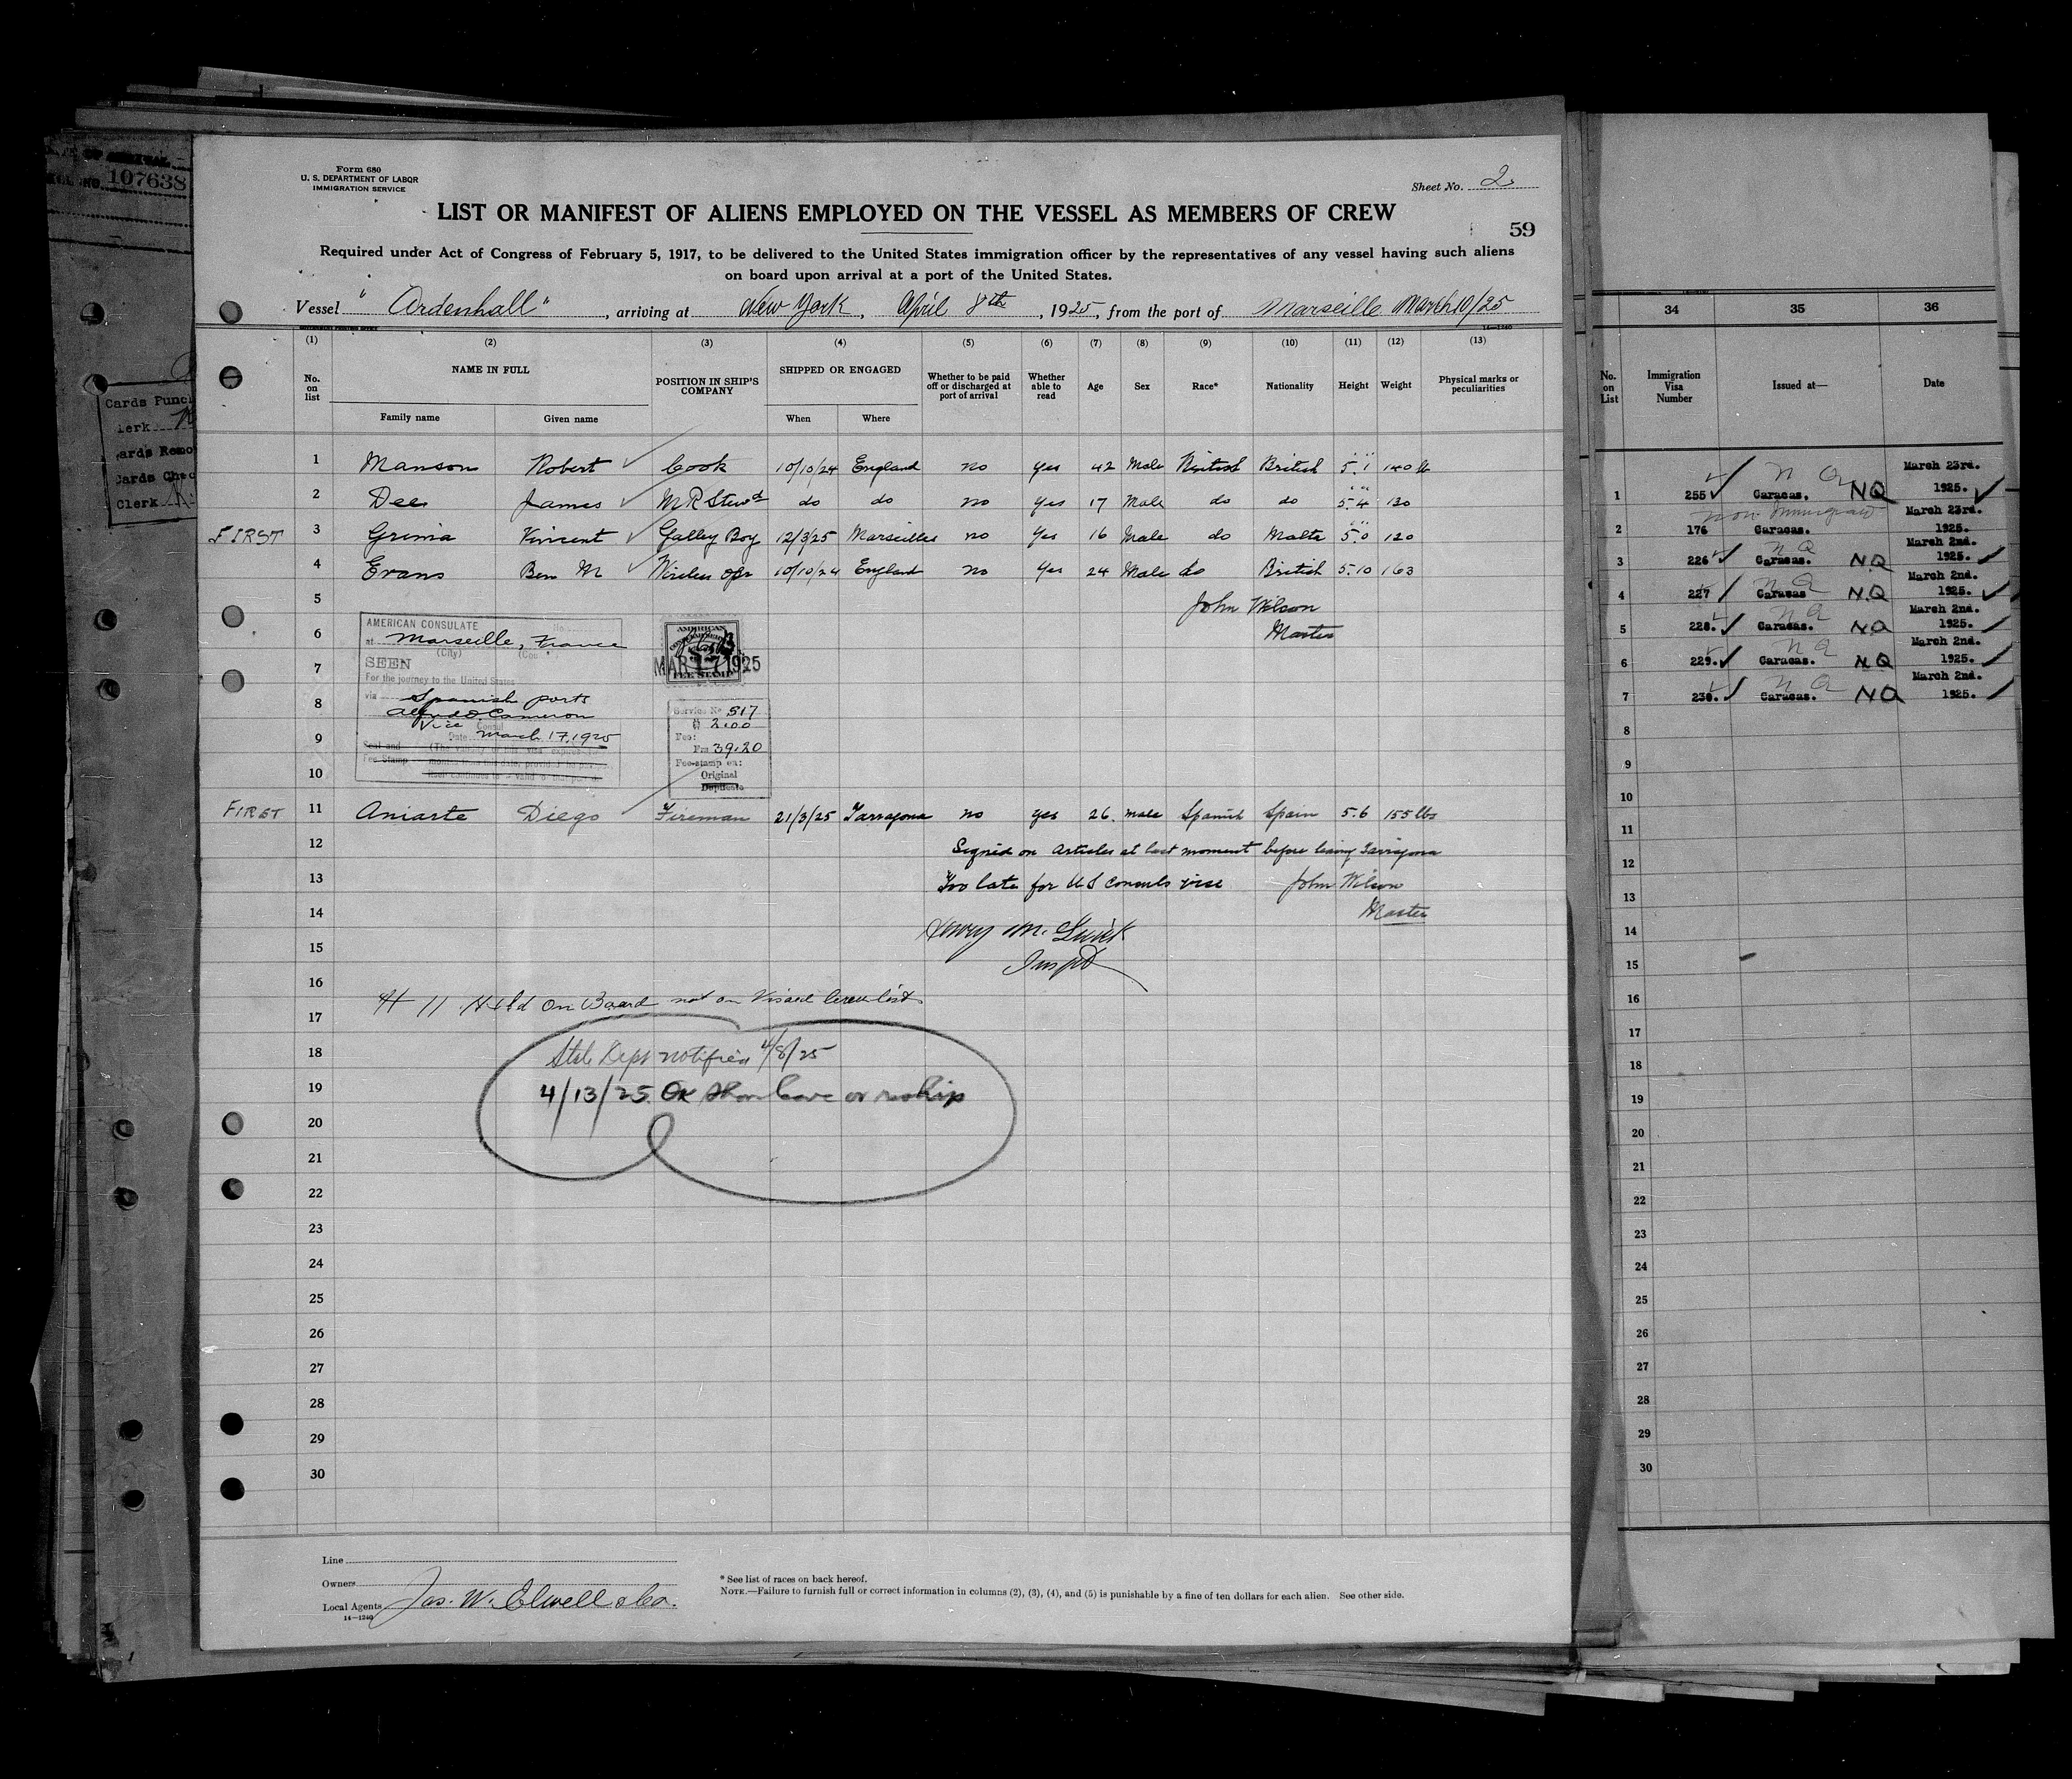 OF ARRIVAL
NO. 107638
Cards Punc
Clerk
Cards Remo
Cards Chec
Clerk
Form 680
U. S. DEPARTMENT OF LABOR
IMMIGRATION SERVICE
Sheet No. 2
LIST OR MANIFEST OF ALIENS EMPLOYED ON THE VESSEL AS MEMBERS OF CREW
59
Required under Act of Congress of February 5, 1917, to be delivered to the United States immigration officer by the representatives of any vessel having such aliens
on board upon arrival at a port of the United States.
Vessel "Ardenhall", arriving at New York, April 8th, 1925, from the port of Marseille March 10/25
14—1240
(1) (2) (3) (4) (5) (6) (7) (8) (9) (10) (11) (12) (13)
No. on list NAME IN FULL POSITION IN SHIP'S COMPANY SHIPPED OR ENGAGED Whether to be paid off or discharged at port of arrival Whether able to read Age Sex Race* Nationality Height Weight Physical marks or peculiarities
Family name Given name When Where
1 Manson Robert Cook 10/10/24 England no yes 42 Male British British 5.1 140 lb
2 Dee James M R Stewd do do no yes 17 Male do do 5.4 130
FIRST 3 Grima Vincent Galley Boy 12/3/25 Marseilles no Yes 16 Male do Malta 5.0 120
4 Evans Ben M Wireless opr 10/10/24 England no Yes 24 Male do British 5.10 163
5 John Wilson
6 Master
7
8
9
10
AMERICAN CONSULATE No.
at Marseille, France
(City) (Cou
SEEN
For the journey to the United States
via Spanish ports
Alfred D. Cameron
Vice Consul
Date March 17, 1925
Seal and
Fee Stamp
AMERICAN
FEE STAMP
MAR 17 1925
Service No 517
$ 2.00
Fee:
Frs 39.20
Fee-stamp on:
Original
Duplicate
FIRST 11 Aniarte Diego Fireman 21/3/25 Tarragona no yes 26. male Spanish Spain 5.6 155 lbs
12 Signed on Articles at last moment before leaving Tarragona
13 Too late for U S Consuls vise John Wilson
14 Master
15
Inspt
16
# 11 Held On Board not on Visaed Crew list
17
18 Stat Dept notified 4/8/25
19 4/13/25 OK Shore leave or reship
20
21
22
23
24
25
26
27
28
29
30
Line
Owners
Local Agents Jas. W. Elwell & Co.
14—1240
* See list of races on back hereof.
NOTE.—Failure to furnish full or correct information in columns (2), (3), (4), and (5) is punishable by a fine of ten dollars for each alien. See other side.
34 35 36
No. on List Immigration Visa Number Issued at— Date
1 255 Caracas. NQ March 23rd. 1925.
Non Immigrant
2 176 Caracas. March 23rd. 1925.
3 226 Caracas. NQ March 2nd. 1925.
4 227 Caracas NQ March 2nd. 1925.
5 228. Caracas. NQ March 2nd. 1925.
6 229. Caracas. NQ March 2nd. 1925.
7 230. Caracas. NQ March 2nd. 1925.
8
9
10
11
12
13
14
15
16
17
18
19
20
21
22
23
24
25
26
27
28
29
30